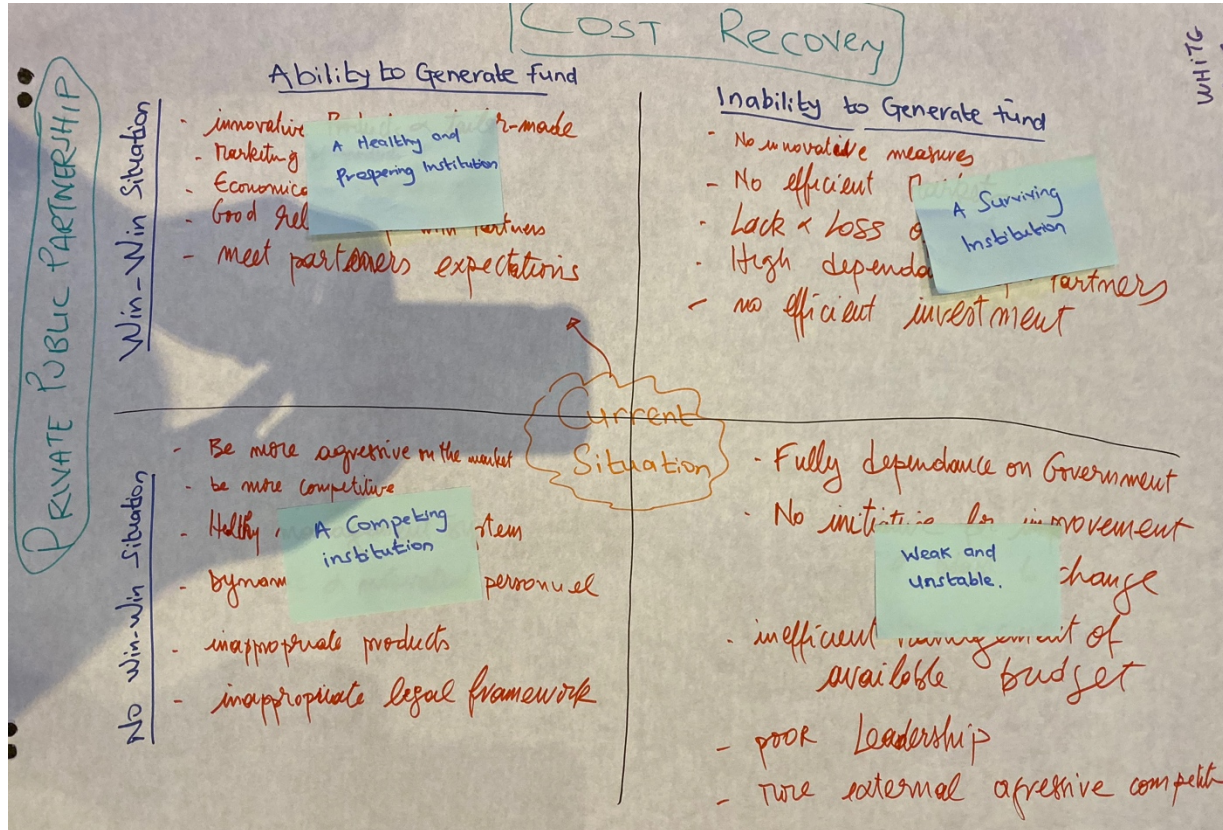 COST RECOVERY
WHITE
PRIVATE PUBLIC PARTNERSHIP
Ability to Generate Fund
Inability to Generate fund
Win-Win Situation
- innovative
- Marketing
- Economic
- Good with Partners
- meet partners expectations
A Healthy and
Prospering Institution
- No innovative measures
- No efficient
- Lack & Loss
- High Partners
- no efficient investment
A Surviving
Institution
Current
Situation
No Win-Win Situation
- Be more agressive on the market
- be more competitive
- Healthy
- Dynam personnel
- inappropriate products
- inappropriate legal framework
A Competing
institution
- Fully dependance on Government
- No initiative for improvement
change
- inefficient management of
available budget
- poor Leadership
- external agressive
Weak and
Unstable.